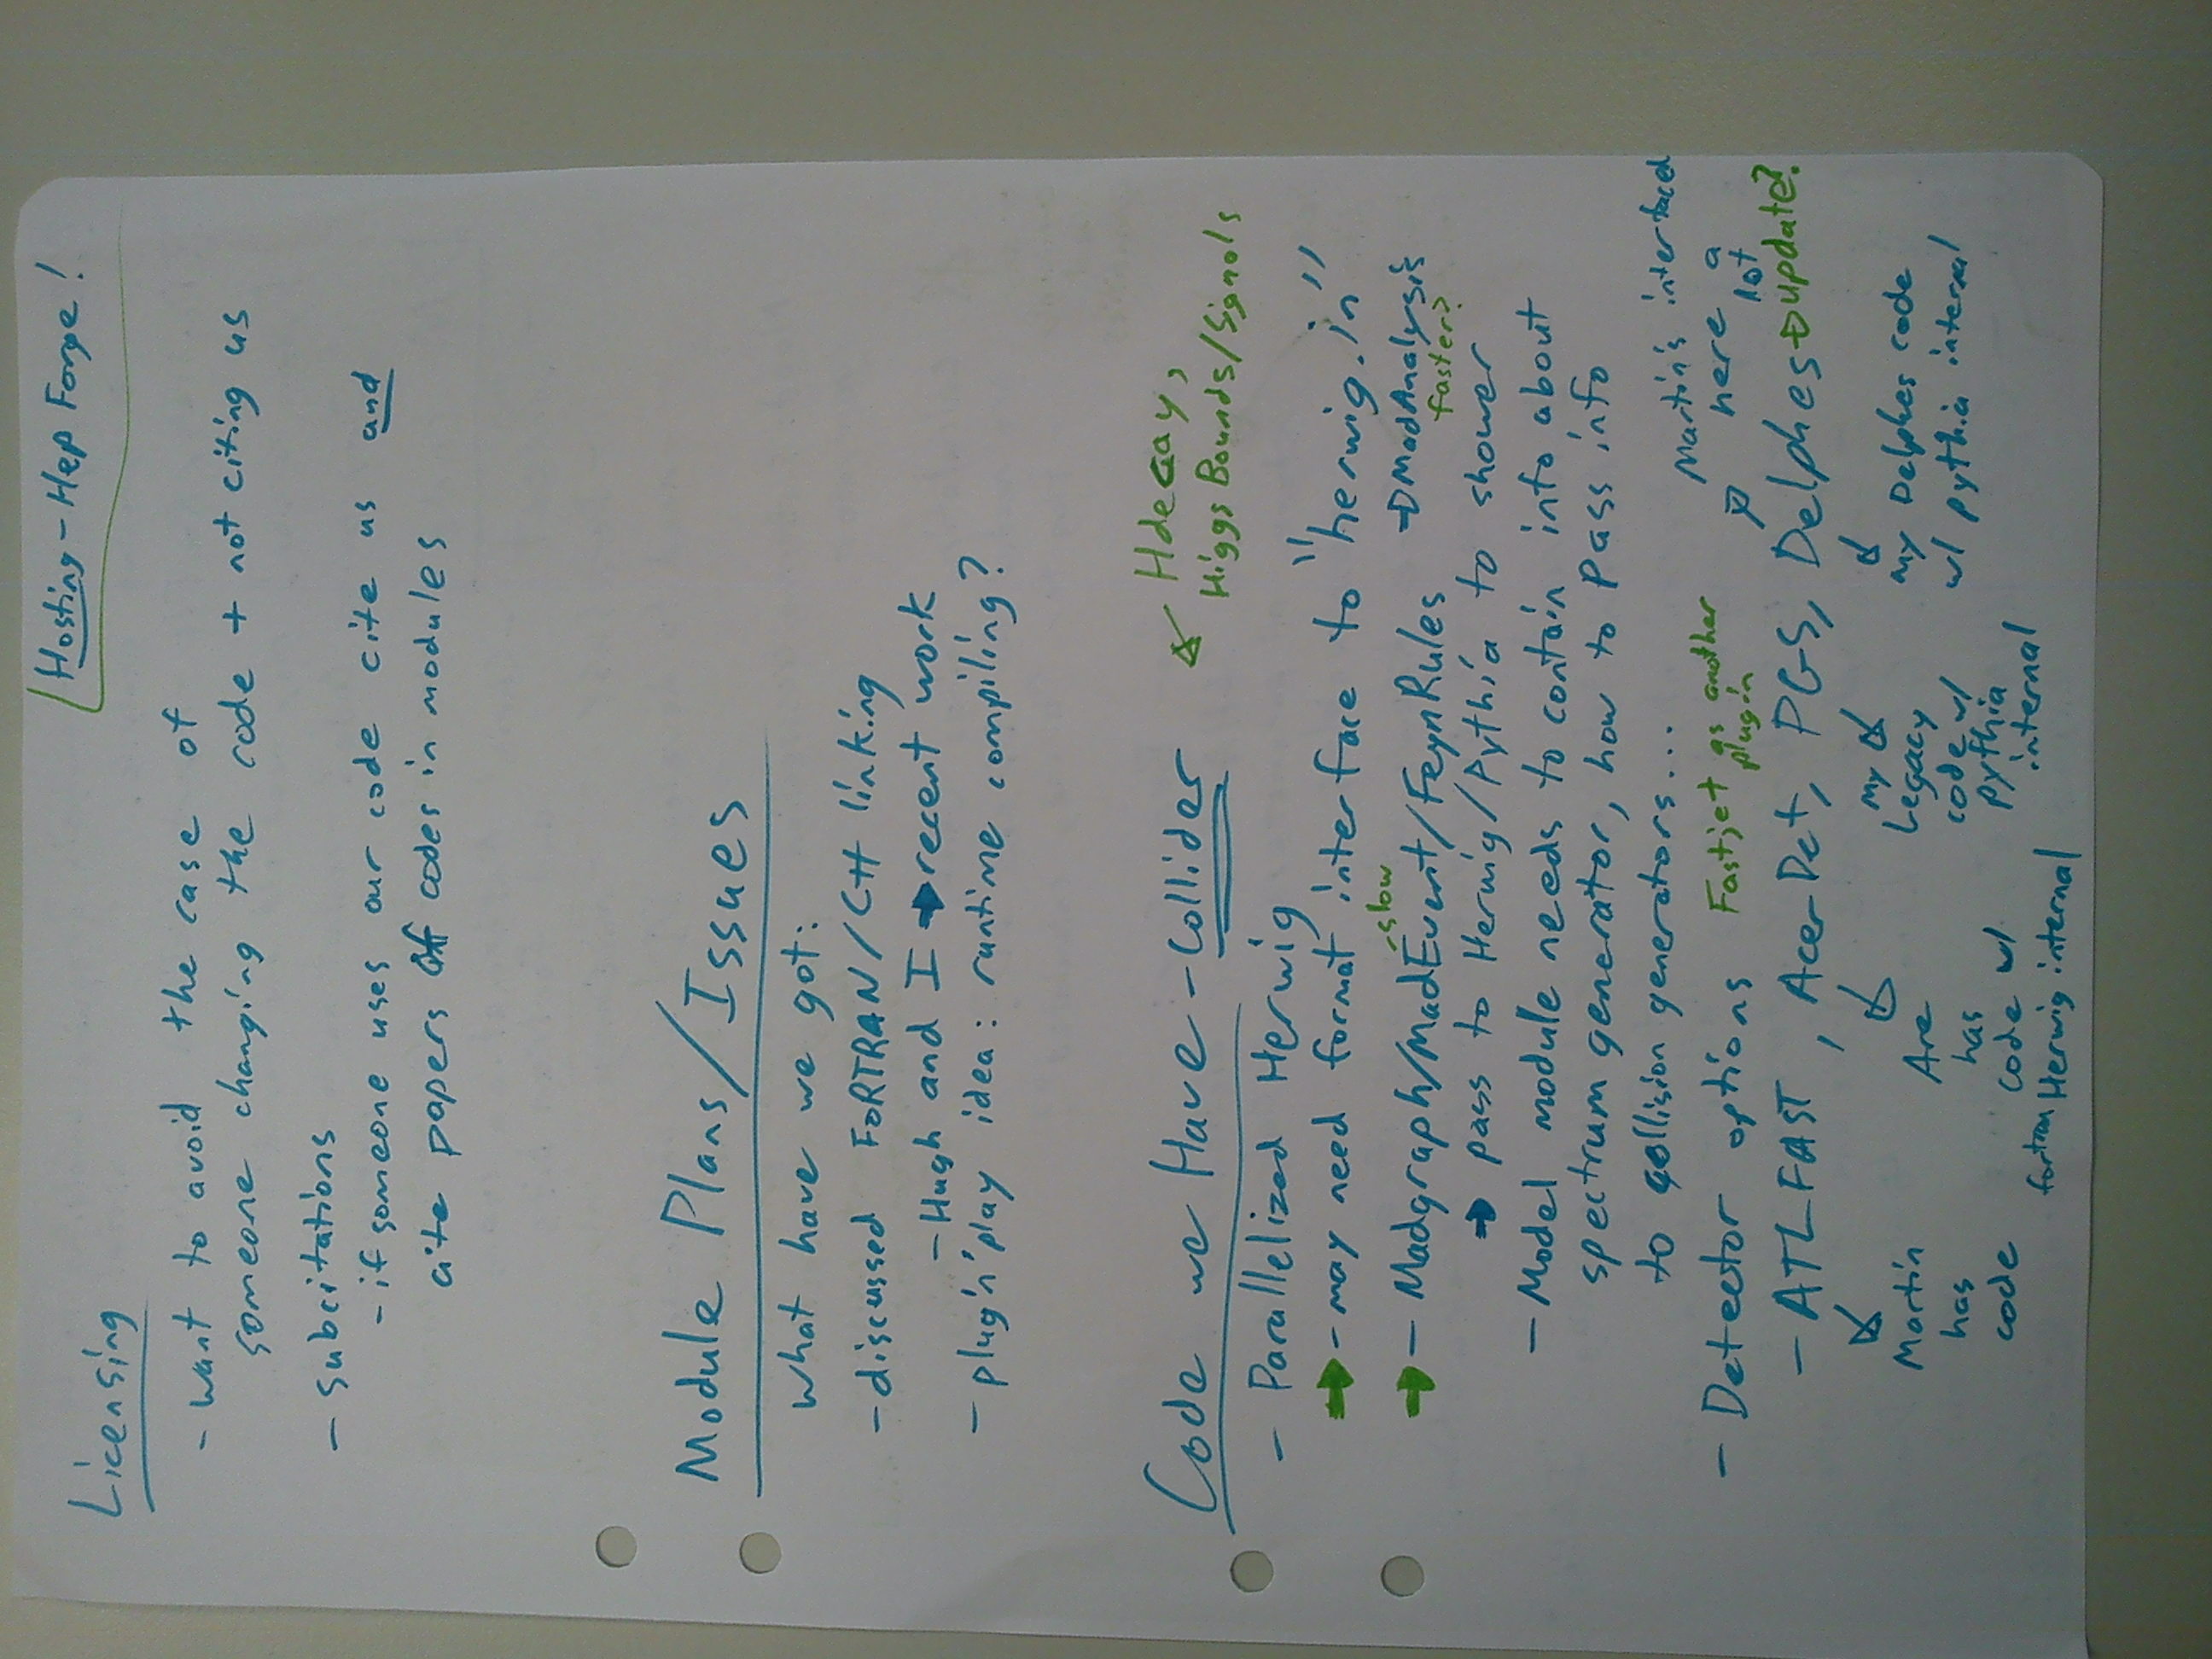 Hosting - Hep Forge!
Licensing
- want to avoid the case of
someone changing the code + not citing us
- subcitations
- if someone uses our code cite us and
cite papers of codes in modules
Module Plans/Issues
What have we got:
- discussed FORTRAN/C++ linking
- Hugh and I → recent work
- plug'n'play idea: runtime compiling?
Code we Have - Collider
← Hdecay,
Higgs Bounds/Signals
- Parallelized Herwig
→ - may need format interface to "herwig.in"
- slow
→ - Madgraph/MadEvent/FeynRules → MadAnalysis
faster?
→ pass to Herwig/Pythia to shower
- Model module needs to contain info about
spectrum generator, how to pass info
to collision generators...
Martin's interfaced
here a
lot
- Detector options
Fastjet as another
plugin
- ATLFAST, AcerDet, PGS, Delphes → update?
Martin
has
code
Are
has
code w/
fortran Herwig internal
My
Legacy
code w/
pythia
internal
my Delphes code
w/ pythia internal